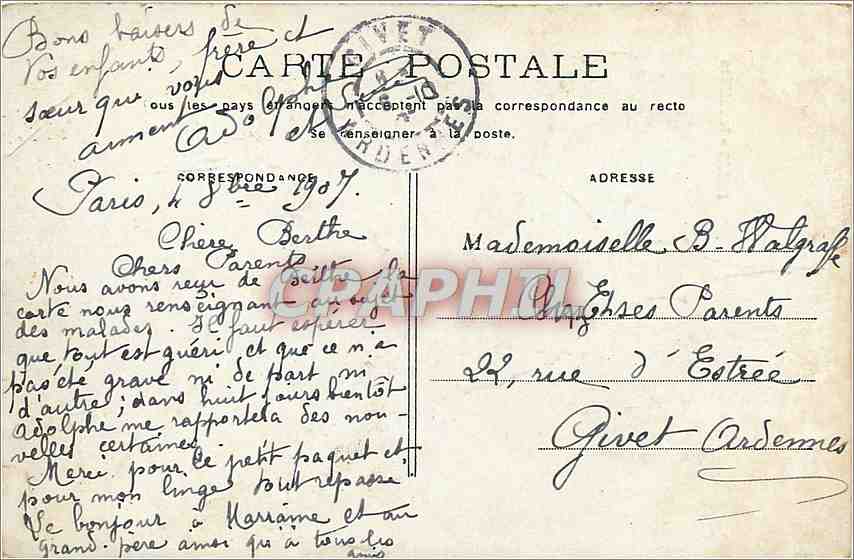 Bons baisers de
Vos enfants, frère et
sœur qui vous
aiment
Adolphe
GIVET
ARDENNES
CARTE POSTALE
Tous les pays étrangers n'acceptent pas la correspondance au recto
Se renseigner à la poste.
CORRESPONDANCE
Paris, 4 8bre 1907.
Chère Berthe
Chers Parents
Nous avons reçu de Berthe la
carte nous renseignant au sujet
des malades. Il faut espérer
que tout est guéri et que ce n'a
pas été grave ni de part ni
d'autre; dans huit jours bientôt
Adolphe me rapportera des nou-
velles certaines
Merci pour le petit paquet et
pour mon linge tout repassé.
Le bonjour à Marraine et au
grand-père ainsi qu'à tous les
amis
ADRESSE
Mademoiselle B. Walgraffe
Chez Ses Parents
22, rue d'Estrée
Givet Ardennes
CPAPHIL